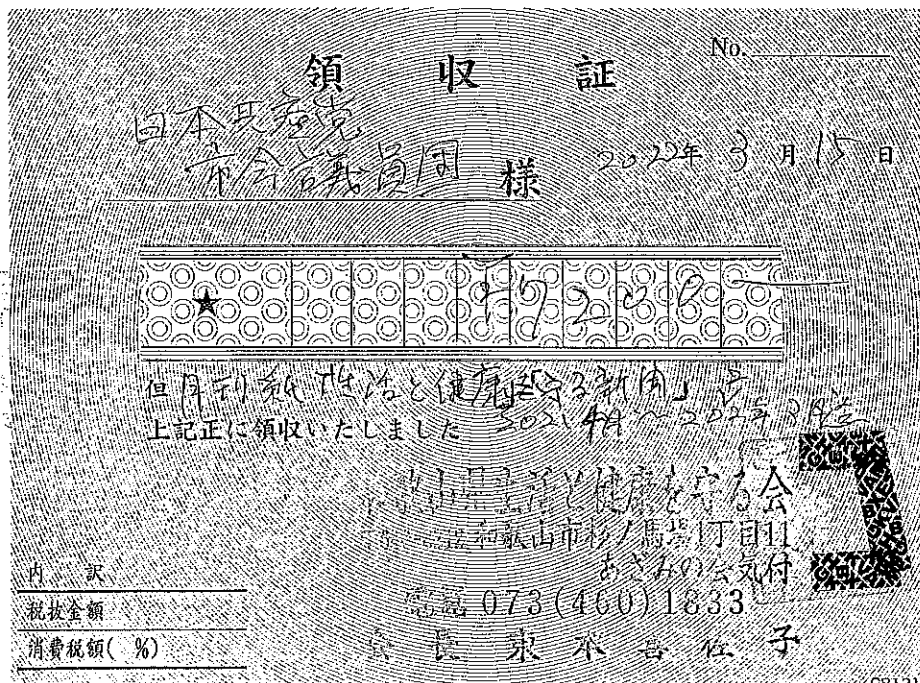 No.
領収証
日本共産党
市会議員団 様
2022年 3月 15日
★ ¥7200
但 月刊紙「生活と健康を守る新聞」
上記正に領収いたしました 2021 4月〜2022年3月
山県生活と健康を守る会
和歌山市杉ノ馬場1丁目11
あざみの会気付
電話 073(460)1833
会長
内訳
税抜金額
消費税額( %)